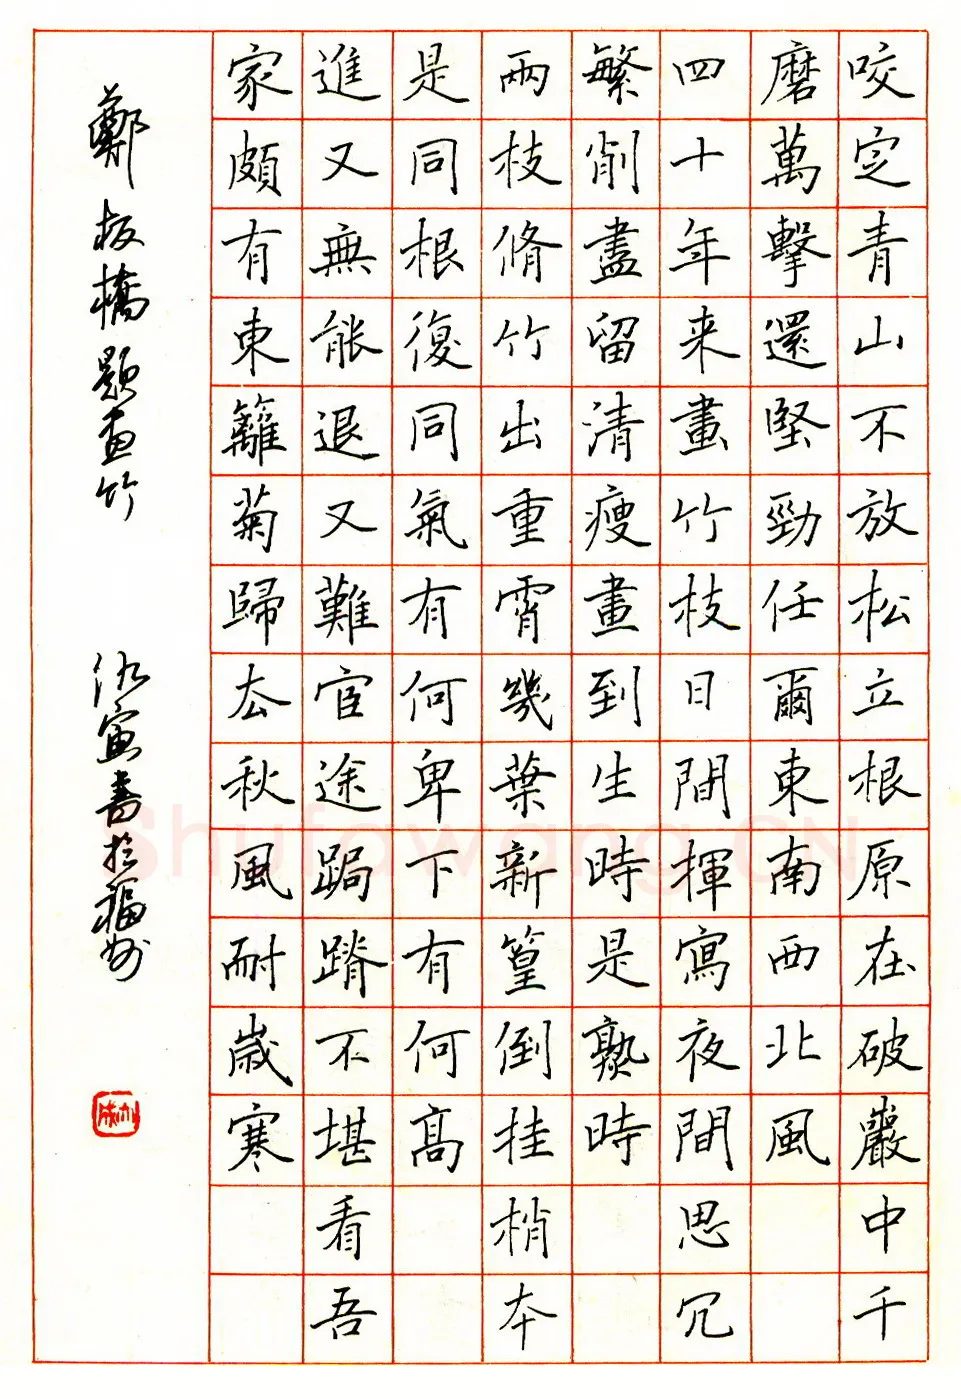 咬定青山不放松立根原在破巖中千
磨萬擊還堅勁任爾東南西北風
四十年来畫竹枝日間揮寫夜間思冗
繁削盡留清瘦畫到生時是熟時
兩枝脩竹出重霄幾葉新篁倒挂梢本
是同根復同氣有何卑下有何高
進又無能退又難宦途跼蹐不堪看吾
家頗有東籬菊歸去秋風耐歲寒
鄭板橋題畫竹
仇寅書於福州
Shufawang.CN